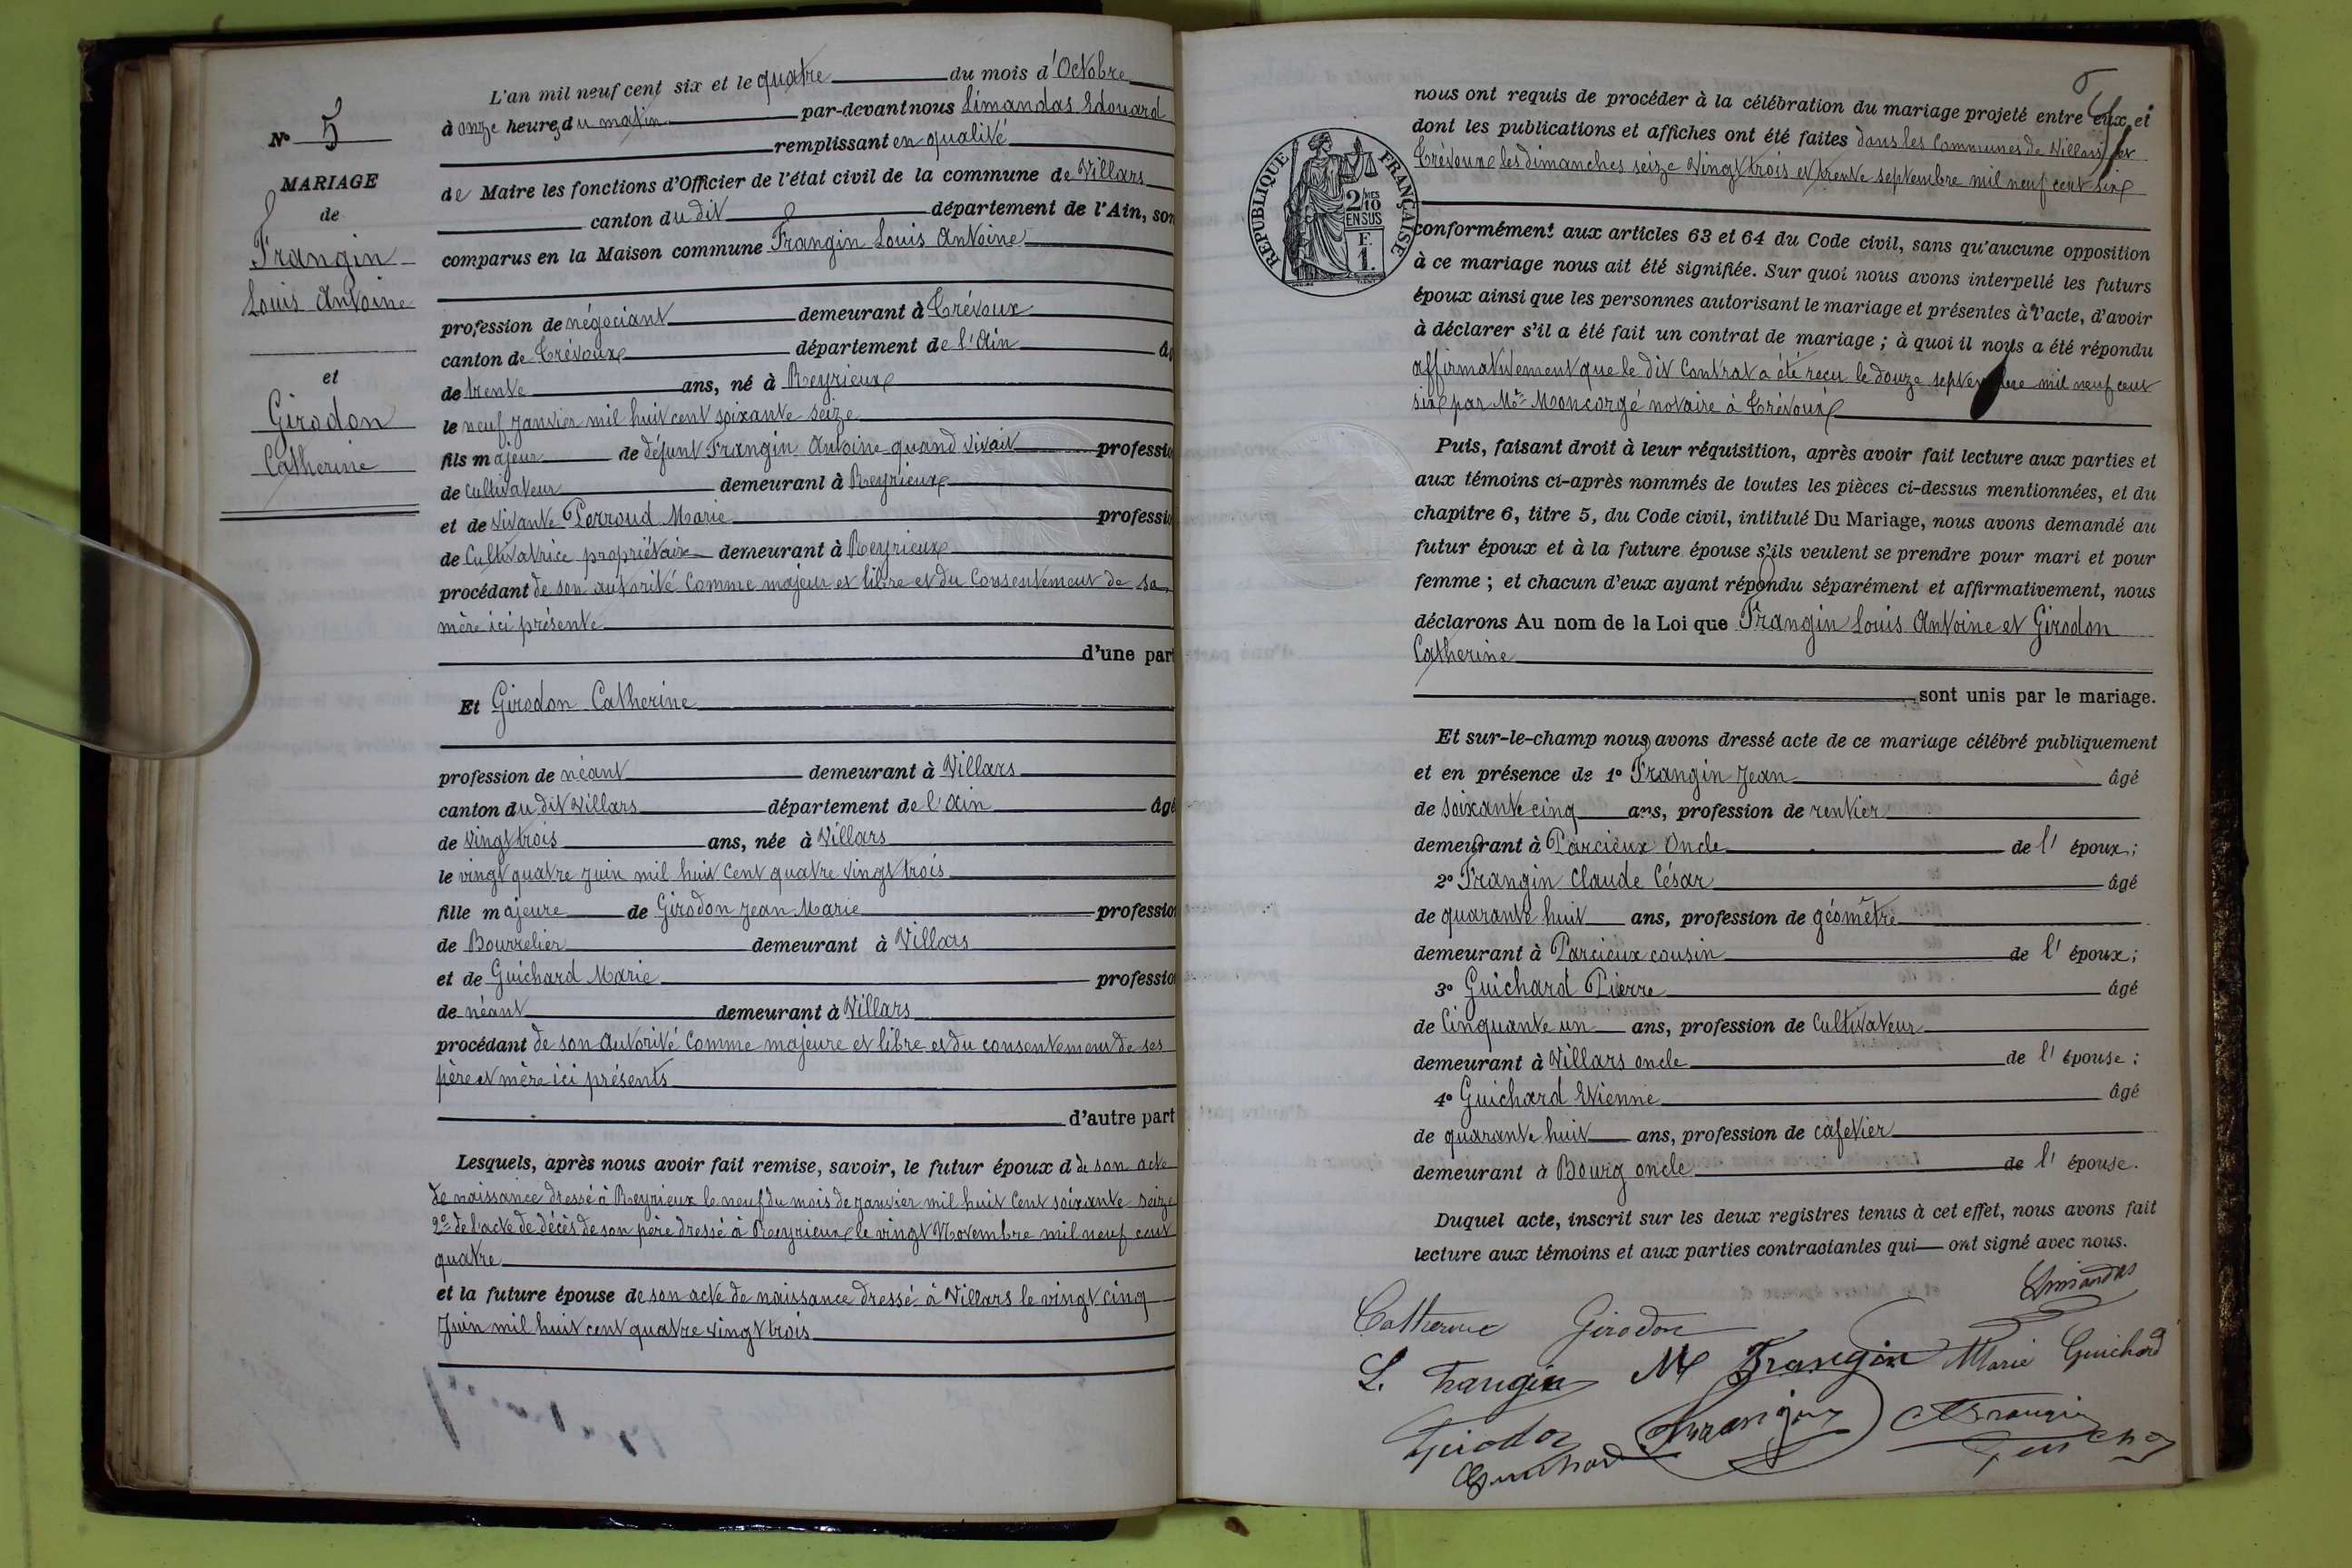 N° 5
MARIAGE
de
Frangin
Louis Antoine
et
Girodon
Catherine
L'an mil neuf cent six et le quatre du mois d'Octobre
à onze heures du matin par-devant nous Limandas Edouard
remplissant en qualité
de Maire les fonctions d'Officier de l'état civil de la commune de Villars
canton du dit département de l'Ain, son
comparus en la Maison commune Frangin Louis Antoine
profession de négociant demeurant à Trévoux
canton de Trévoux département de l'Ain â
de trente ans, né à Reyrieux
le neuf Janvier mil huit cent soixante seize
fils majeur de défunt Frangin Antoine quand vivait professio
de cultivateur demeurant à Reyrieux
et de vivante Perroud Marie professio
de Cultivatrice propriétaire demeurant à Reyrieux
procédant de son autorité Comme majeur et libre et du Consentement de sa
mère ici présente
d'une part
Et Girodon Catherine
profession de néant demeurant à Villars
canton du dit Villars département de l'Ain âgé
de vingt trois ans, née à Villars
le vingt quatre Juin mil huit Cent quatre vingt trois
fille majeure de Girodon Jean Marie profession
de Bourrelier demeurant à Villars
et de Guichard Marie profession
de néant demeurant à Villars
procédant de son Autorité Comme majeure et libre et du consentement de ses
père et mère ici présents
d'autre part
Lesquels, après nous avoir fait remise, savoir, le futur époux d de son acte
de naissance dressé à Reyrieux le neuf du mois de Janvier mil huit Cent soixante seize
2° de l'acte de décès de son père dressé à Reyrieux le vingt Novembre mil neuf cent
quatre
et la future épouse de son acte de naissance dressé à Villars le vingt cinq
Juin mil huit cent quatre vingt trois
5
nous ont requis de procéder à la célébration du mariage projeté entre eux, et
dont les publications et affiches ont été faites dans les Communes de Villars et
Trévoux les dimanches seize vingt trois et trente septembre mil neuf cent six
RÉPUBLIQUE FRANÇAISE
2/10 EN SUS
F. 1.
conformément aux articles 63 et 64 du Code civil, sans qu'aucune opposition
à ce mariage nous ait été signifiée. Sur quoi nous avons interpellé les futurs
époux ainsi que les personnes autorisant le mariage et présentes à l'acte, d'avoir
à déclarer s'il a été fait un contrat de mariage ; à quoi il nous a été répondu
affirmativement que le dit Contrat a été reçu le douze septembre mil neuf cent
six par Me Moncorgé notaire à Trévoux
Puis, faisant droit à leur réquisition, après avoir fait lecture aux parties et
aux témoins ci-après nommés de toutes les pièces ci-dessus mentionnées, et du
chapitre 6, titre 5, du Code civil, intitulé Du Mariage, nous avons demandé au
futur époux et à la future épouse s'ils veulent se prendre pour mari et pour
femme ; et chacun d'eux ayant répondu séparément et affirmativement, nous
déclarons Au nom de la Loi que Frangin Louis Antoine et Girodon
Catherine
sont unis par le mariage.
Et sur-le-champ nous avons dressé acte de ce mariage célébré publiquement
et en présence de 1° Frangin Jean âgé
de soixante cinq ans, profession de rentier
demeurant à Parcieux Oncle de l' époux ;
2° Frangin Claude César âgé
de quarante huit ans, profession de géomètre
demeurant à Parcieux cousin de l' époux ;
3° Guichard Pierre âgé
de Cinquante un ans, profession de Cultivateur
demeurant à Villars oncle de l' épouse ;
4° Guichard Etienne âgé
de quarante huit ans, profession de cafetier
demeurant à Bourg oncle de l' épouse.
Duquel acte, inscrit sur les deux registres tenus à cet effet, nous avons fait
lecture aux témoins et aux parties contractantes qui ont signé avec nous.
Limandas
Catherine Girodon
L. Frangin M Frangin Marie Guichard
Girodon Frangin C Frangin
Guichard Guichard